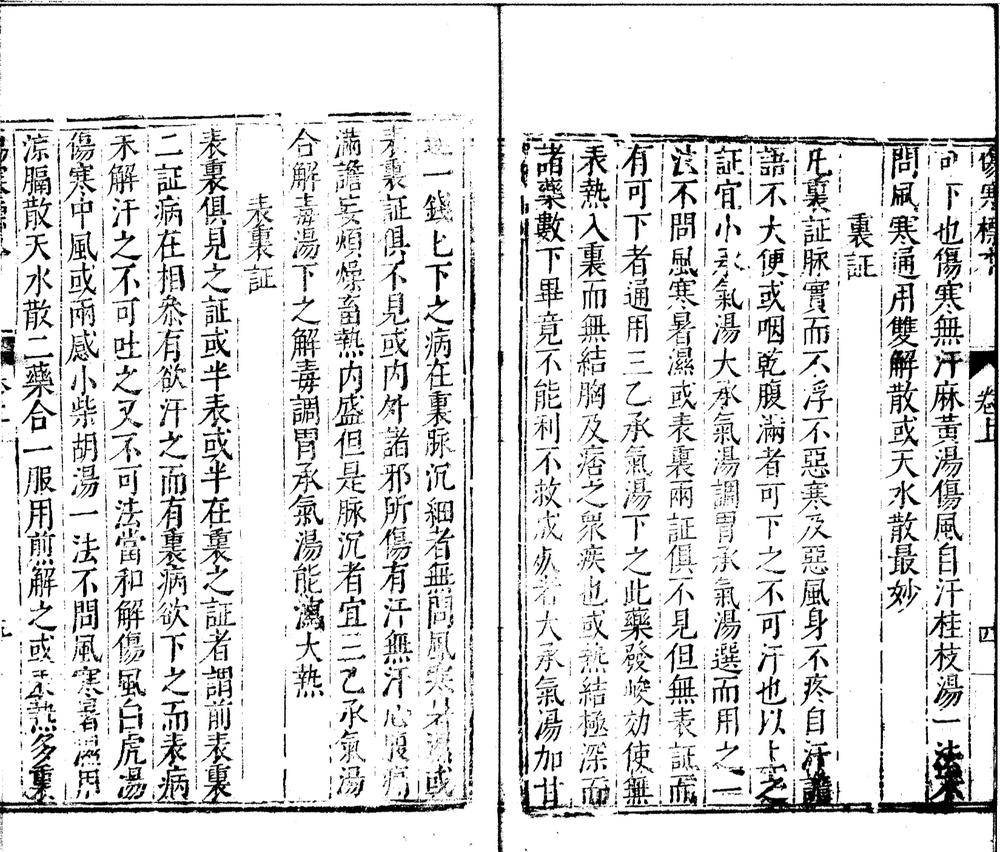 傷寒標本 卷上 四
可下也傷寒無汗麻黃湯傷風自汗桂枝湯一法不
問風寒通用雙解散或天水散最妙
裏証
凡裏証脉實而不浮不惡寒及惡風身不疼自汗譫
語不大便或咽乾腹滿者可下之不可汗也以上之
証宜小承氣湯大承氣湯調胃承氣湯選而用之一
法不問風寒暑濕或表裏兩証俱不見但無表証而
有可下者通用三乙承氣湯下之此藥發峻効使無
表熱入裏而無結胸及痞之衆疾也或熱結極深而
諸藥數下畢竟不能利不救成病者大承氣湯加甘
遂一錢匕下之病在裏脉沉細者無問風寒暑濕或
表裏証俱不見或內外諸邪所傷有汗無汗心腹痛
滿譫妄煩燥畜熱内盛但是脉沉者宜三乙承氣湯
合解毒湯下之解毒調胃承氣湯能瀉大熱
表裏証
表裏俱見之証或半表或半在裏之証者謂前表裏
二証病在相叅有欲汗之而有裏病欲下之而表病
未解汗之不可吐之又不可法當和解傷風白虎湯
傷寒中風或兩感小柴胡湯一法不問風寒暑濕用
凉膈散天水散二藥合一服用煎解之或表熱多裏